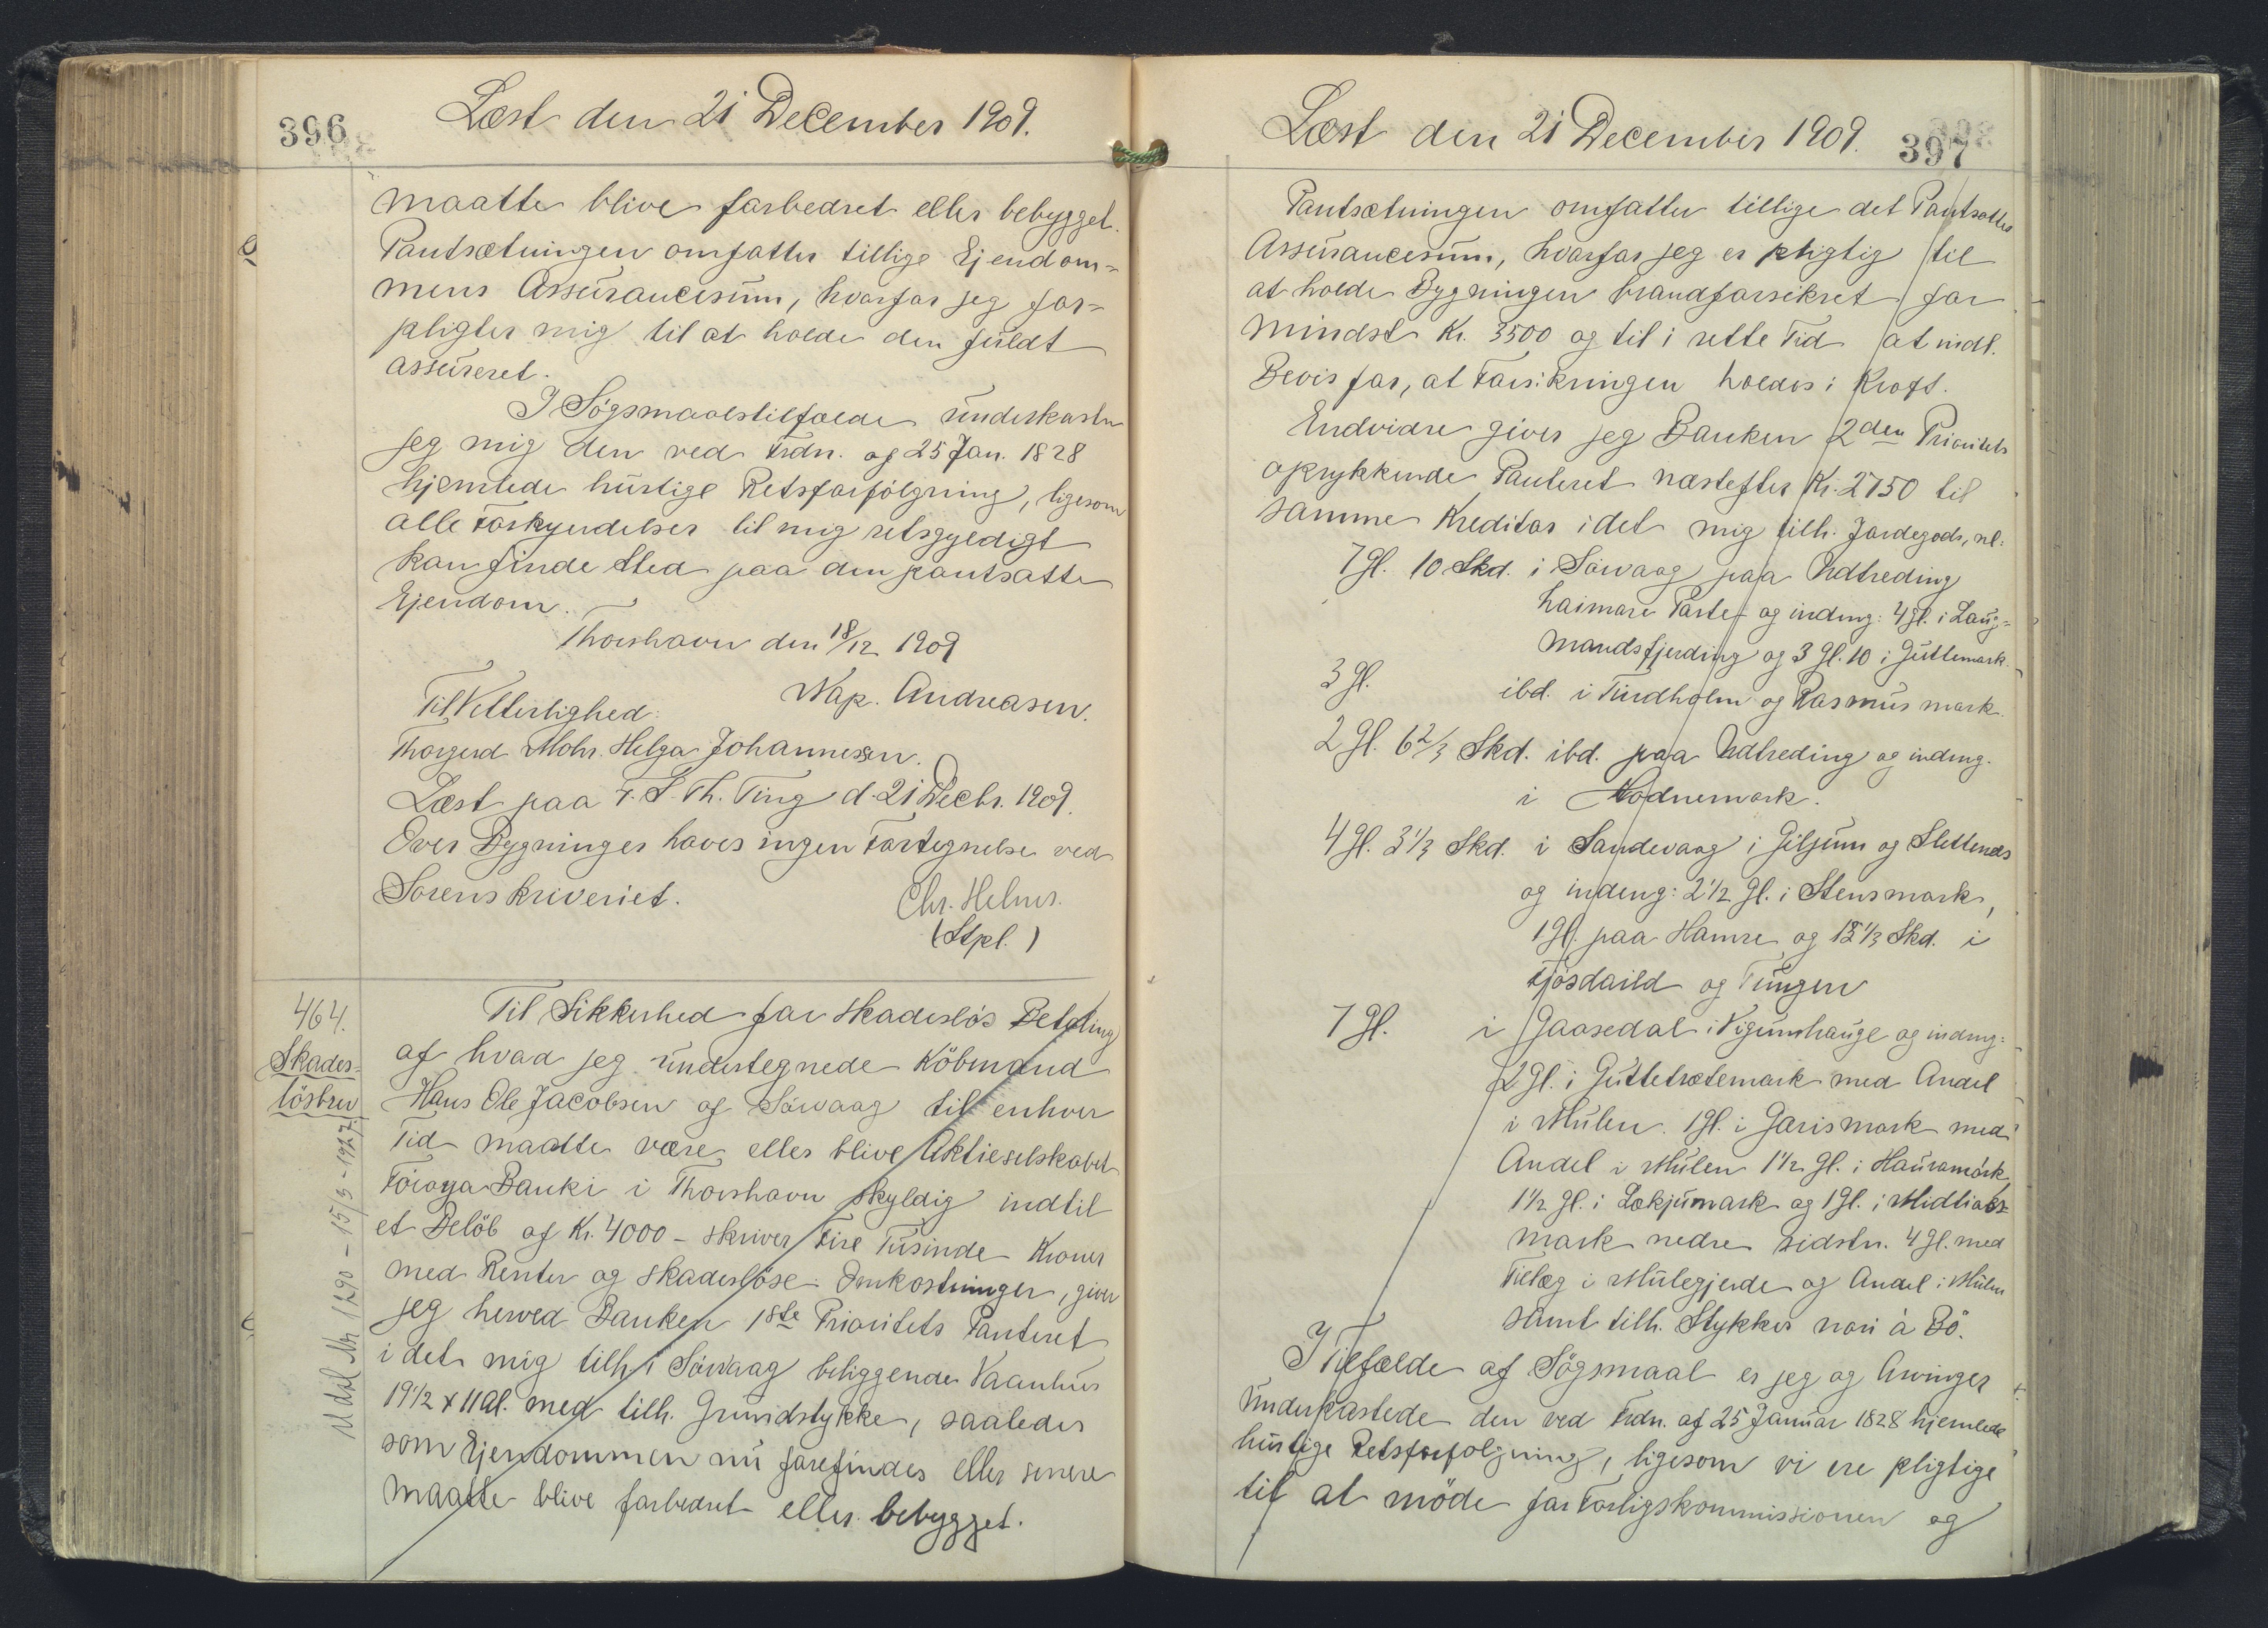 396
Læst den 21 December 1909.
maatte blive forbedret eller bebygget.
Pantsætningen omfatter tillige Ejendom-
mens Assurancesum, hvorfor jeg for-
pligter mig til at holde den fuldt
assureret.
I Søgsmaalstilfælde underkaster
jeg mig den ved Frdn. af 25 Jan. 1828
hjemlede hurtige Retsforfølgning, ligesom
alle Forkyndelser til mig retsgyldigt
kan finde Sted paa den pantsatte
Ejendom.
Thorshavn den 18/12 1909
Nap. Andreasen.
Til Vitterlighed:
Thorgerd Mohr. Helga Johannessen.
Læst paa F. S. Th. Ting d. 21 Decbr. 1909.
Over Bygninger haves ingen Fortegnelse ved
Sorenskriveriet.
Chr. Helms.
(Stpl.)
464.
Skades-
løsbrev
Udsl Nr 1290 - 15/3 - 1927.
Til Sikkerhed for skadesløs Betaling
af hvad jeg undertegnede Købmand
Hans Ole Jacobsen af Sörvaag til enhver
Tid maatte være eller blive Aktieselskabet
Föroya Banki i Thorshavn skyldig indtil
et Beløb af Kr. 4000 - skriver Fire Tusinde Kroner
med Renter og skadesløse Omkostninger, giver
jeg herved Banken 1ste Prioritets Panteret
i det mig tilh. i Sörvaag beliggende Vaanhus
19 1/2 x 11 Al. med tilh. Grundstykke, saaledes
som Ejendommen nu forefindes eller senere
maatte blive forbedret eller bebygget.
Læst den 21 December 1909.
397
Pantsætningen omfatter tillige det Pantsattes
Assurancesum, hvorfor jeg er pligtig til
at holde Bygningen brandforsikret for
mindst Kr. 3500 og til i rette Tid at indl.
Bevis for, at Forsikringen holdes i Kraft.
Endvidre giver jeg Banken 2den Prioritets
oprykkende Panteret næstefter Kr. 2750 til
samme Kreditor i det mig tilh. Jordegods, nl:
7 Gl. 10 Skd. i Sörvaag paa Udtreding
haimare Parter og indeng: 4 Gl. i Laug-
mandsfjerding og 3 Gl. 10 i Guttemark.
3 Gl. ibd. i Tindholm og Rasmusmark.
2 Gl. 6 2/3 Skd. ibd. paa Udtreding og indeng.
i Nodnemark.
4 Gl. 3 1/3 Skd. i Sandevaag i Giljum og Slettenæs
og indeng: 2 1/2 Gl. i Stensmark,
1 Gl. paa Hamre og 18 1/3 Skd. i
Tjösdaild og Tungen
7 Gl. i Gaasedal i Vigumhauge og indeng:
2 Gl. i Guttetrætemark med Andel
i Mulen. 1 Gl. i Garismark med
Andel i Mulen 1 1/2 Gl. i Hauramørk
1 1/2 Gl. i Lokjumark og 1 Gl. i Midliaers-
mark nedre sidstn. 4 Gl. med
Tillæg i Mulegjerde og Andel i Mulen
samt tilh. Stykker nori á Bö.
I Tilfælde af Søgsmaal er jeg og Arvinger
underkastede den ved Frdn. af 25 Januar 1828 hjemlede
hurtige Retsforfølgning, ligesom vi ere pligtige
til at møde for Forligskommissionen og